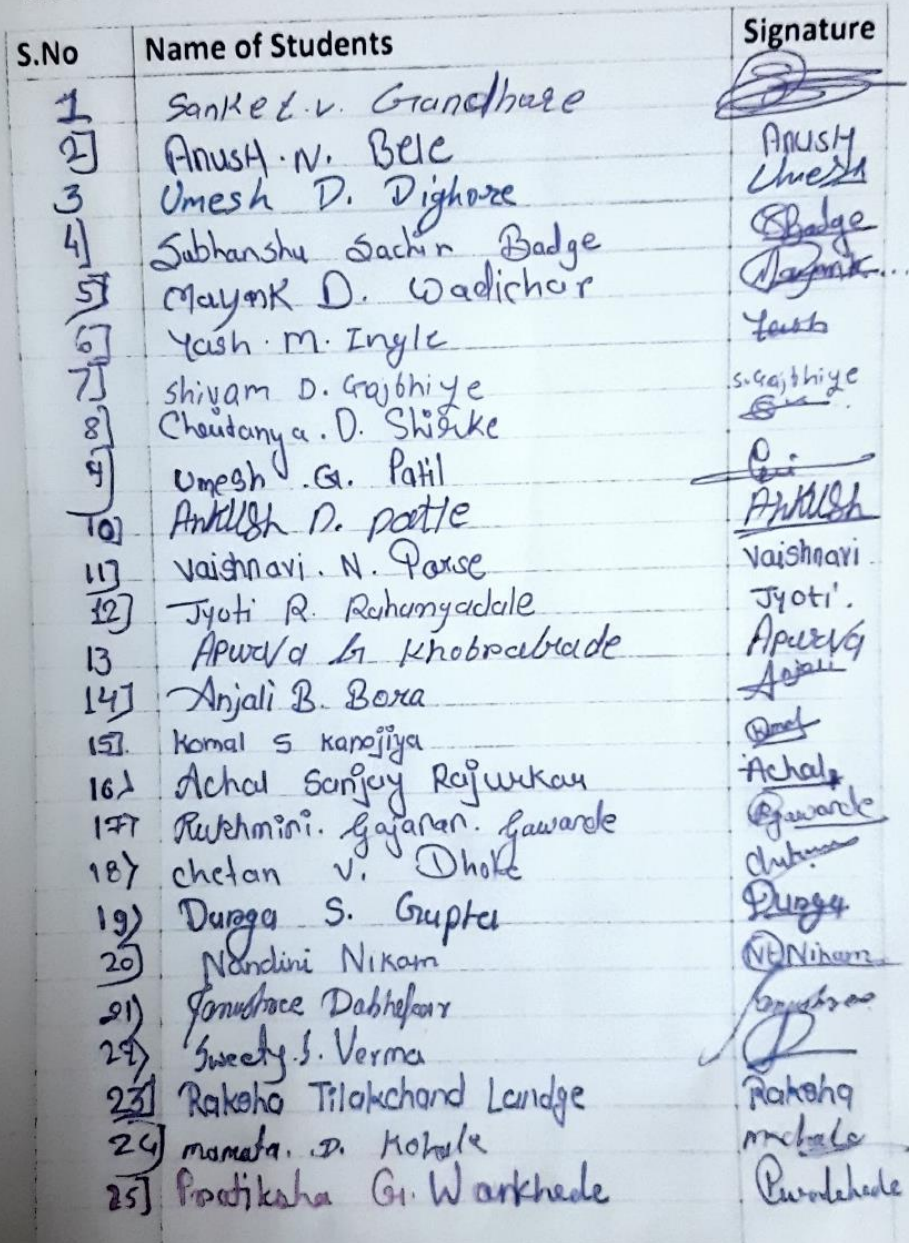 S.No Name of Students Signature
1 Sanket.v. Gandhare
2] Anush.N. Bele Anush
3 Umesh D. Dighore Umesh
4] Subhanshu Sachin Badge SBadge
5] Mayank D. Wadichar Mayank
6] Yash.M.Ingle Yash
7] Shivam D. Gajbhiye S.Gajbhiye
8] Choutanya.D. Shirke
9] Umesh.G. Patil
10] Ankush D. Patle Ankush
11] Vaishnavi.N. Parse Vaishnavi
12] Jyoti R. Rahangadale Jyoti.
13 Apurva G Khobrabrade Apurva
14] Anjali B. Bora Anjali
15]. Komal S Kanojiya
16) Achal Sanjay Rajurkar Achal
17) Rukhmini. Gajanan. Gawarde Rgawarde
18) chetan v. Dhoke
19) Durga S. Gupta Durga
20) Nandini Nikam Nikam
21) Tanushree
22) Sweety.S. Verma
23] Raksha Tilakchand Landge Raksha
24] mamata. D. Kohale
25] Pratiksha G. Warkhede